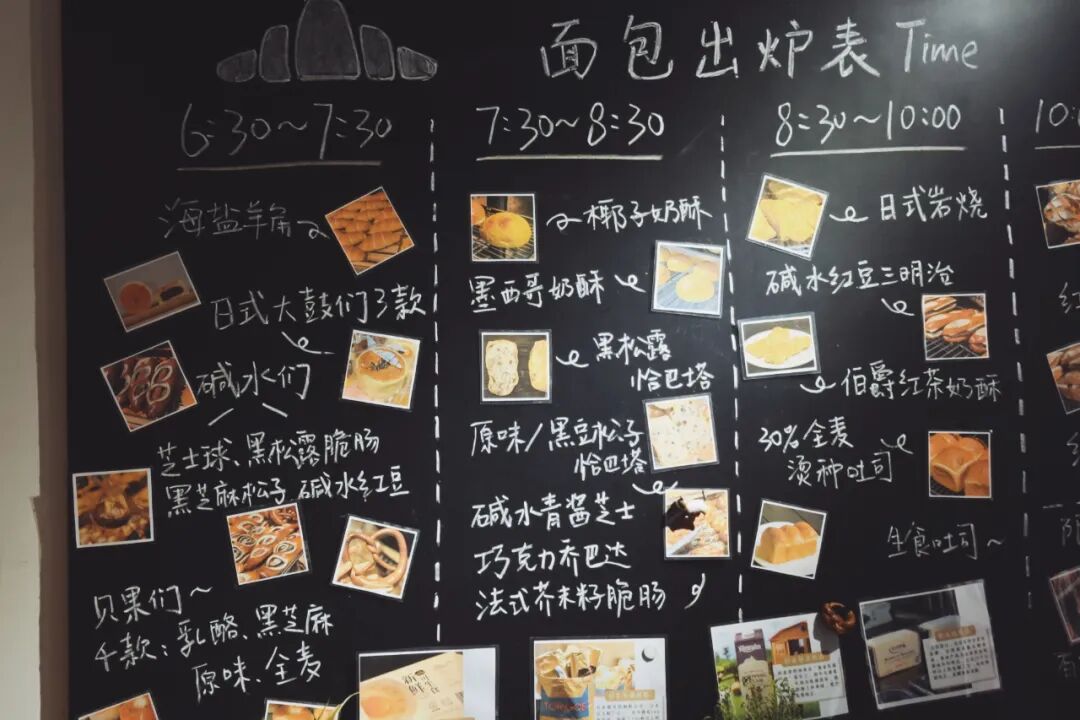 面包出炉表 Time
6:30~7:30
海盐羊角
日式大鼓们3款
碱水们
芝士球、黑松露脆肠
黑芝麻松子 碱水红豆
贝果们~
4款:乳酪、黑芝麻
原味、全麦
7:30~8:30
椰子奶酥
墨西哥奶酥
黑松露
恰巴塔
原味/黑豆松子
恰巴塔
碱水青酱芝士
巧克力乔巴达
法式芥末籽脆肠
8:30~10:00
日式岩烧
碱水红豆三明治
伯爵红茶奶酥
30%全麦
烫种吐司
生食吐司~
10:
新鲜